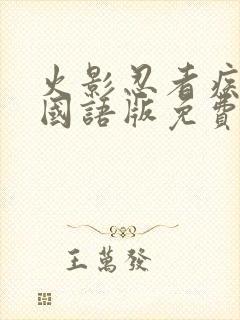 火影忍者疾
國語版免費
王萬發